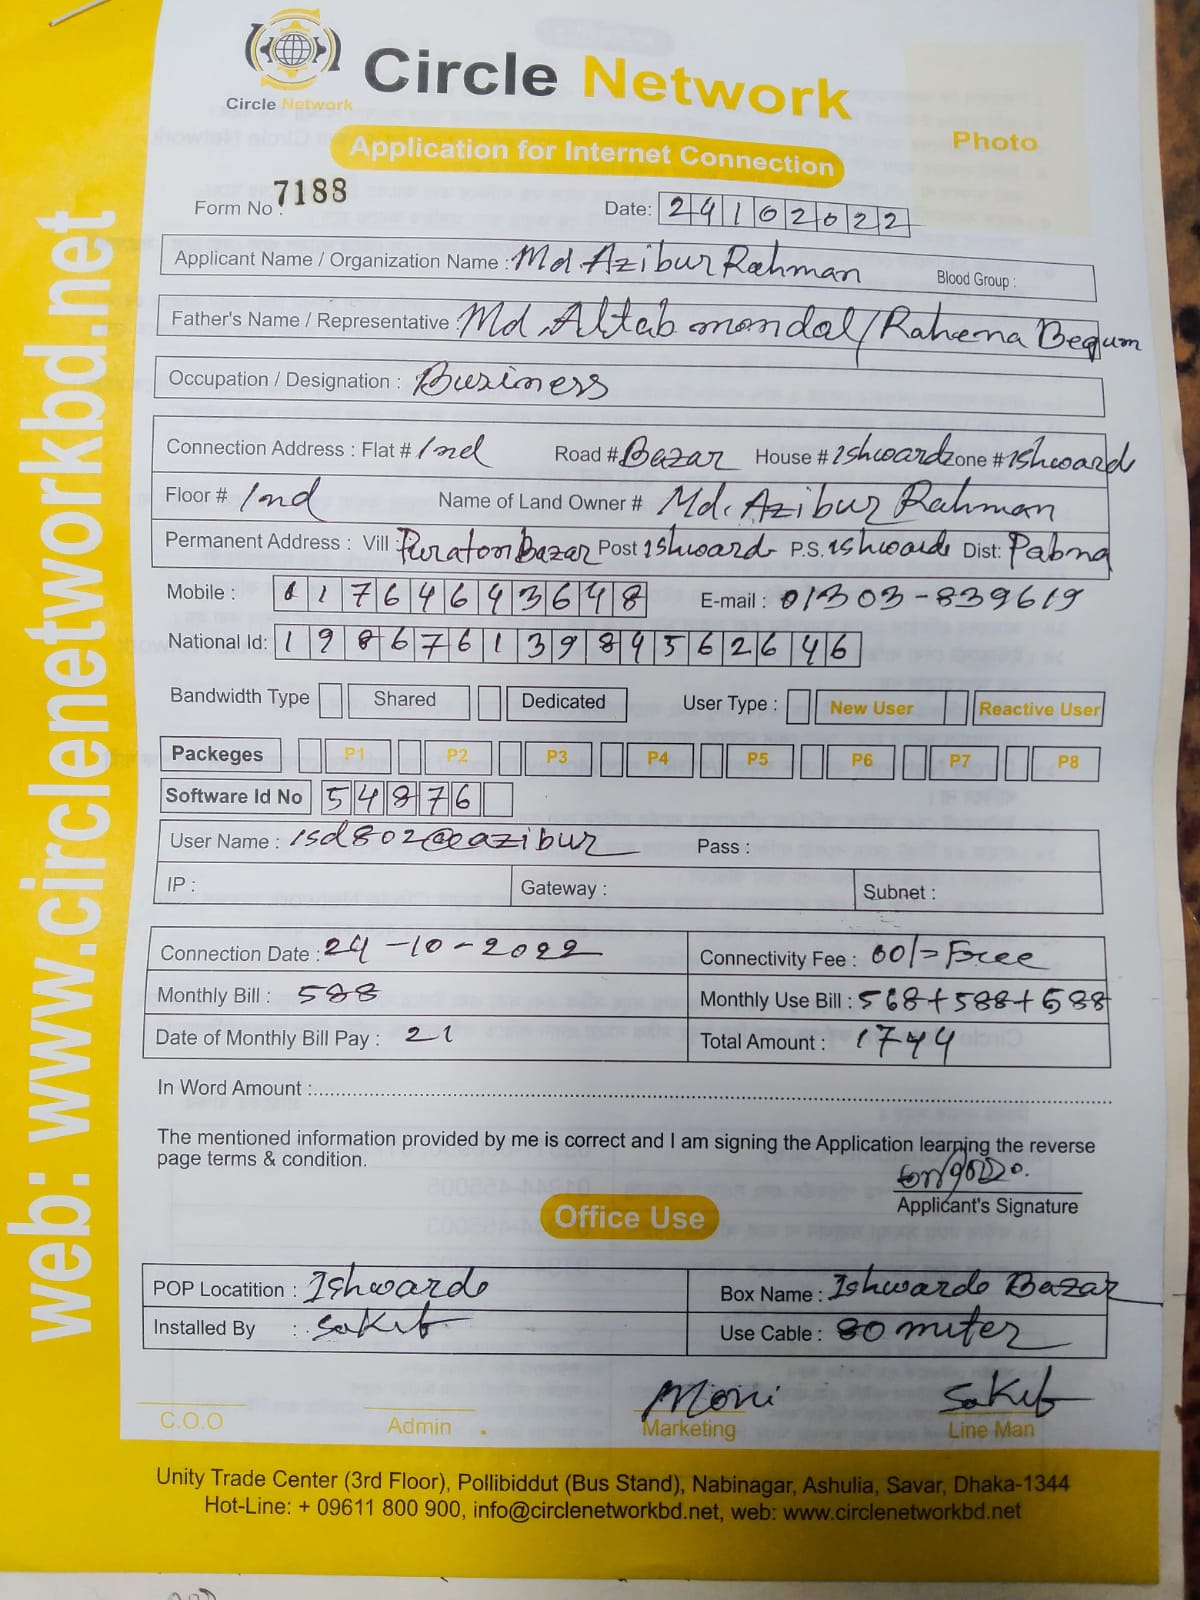 web: www.circlenetworkbd.net
Circle Network
Circle Network
Photo
Application for Internet Connection
Form No : 7188
Date: 24102022
Applicant Name / Organization Name : Md. Azibur Rahman Blood Group :
Father's Name / Representative : Md. Altab mondal / Rahena Begum
Occupation / Designation : Business
Connection Address : Flat # 1nd Road # Bazar House # Ishwardi Zone # Ishwardi
Floor # 1nd Name of Land Owner # Md. Azibur Rahman
Permanent Address : Vill : Puraton Bazar Post Ishwardi P.S. Ishwardi Dist: Pabna
Mobile : 01764643648 E-mail : 01303-839619
National Id: 19867613989562646
Bandwidth Type Shared Dedicated User Type : New User Reactive User
Packeges P1 P2 P3 P4 P5 P6 P7 P8
Software Id No 54876
User Name : isd802@azibur Pass :
IP : Gateway : Subnet :
Connection Date : 24-10-2022 Connectivity Fee : 00/= Free
Monthly Bill : 588 Monthly Use Bill : 568+588+588
Date of Monthly Bill Pay : 21 Total Amount : 1744
In Word Amount :
The mentioned information provided by me is correct and I am signing the Application learning the reverse
page terms & condition.
Applicant's Signature
Office Use
POP Locatition : Ishwardi Box Name : Ishwardi Bazar
Installed By : Sakib Use Cable : 80 miter
Moni Sakib
C.O.O Admin Marketing Line Man
Unity Trade Center (3rd Floor), Pollibiddut (Bus Stand), Nabinagar, Ashulia, Savar, Dhaka-1344
Hot-Line: + 09611 800 900, info@circlenetworkbd.net, web: www.circlenetworkbd.net